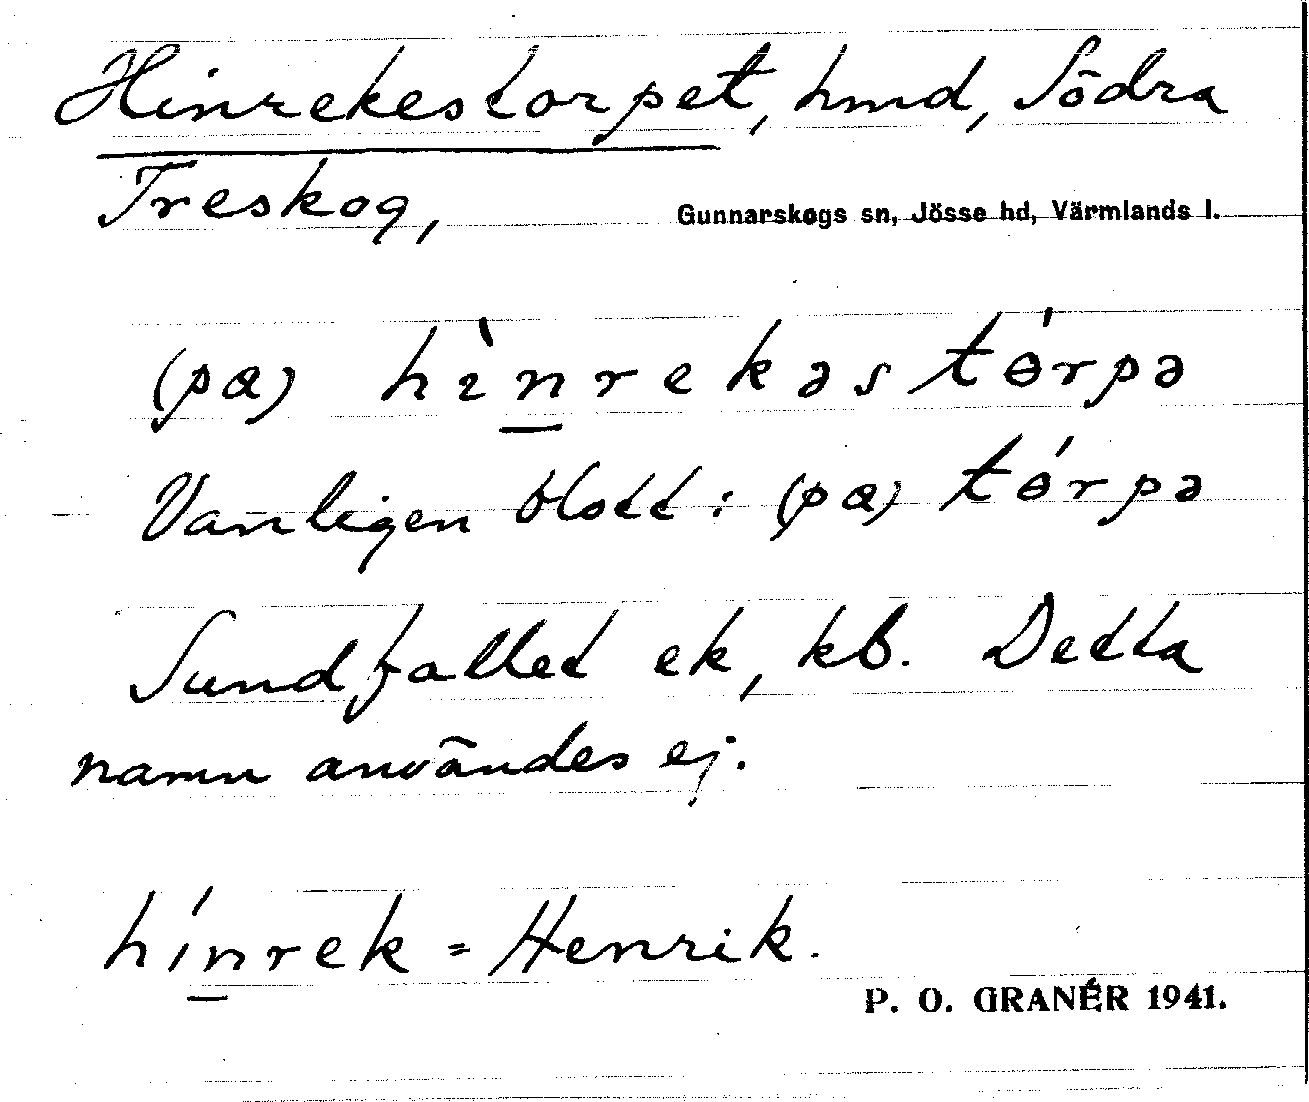 Hinrekestorpet, hmd, Södra
Treskog,
Gunnarskogs sn, Jösse hd, Värmlands l.
(pα) hìnrekəstɵ́rpə
Vanligen blott: (pα) tɵ́rpə
Sundfallet ek, kb. Detta
namn användes ej.
hínrek = Henrik.
P. O. GRANÉR 1941.